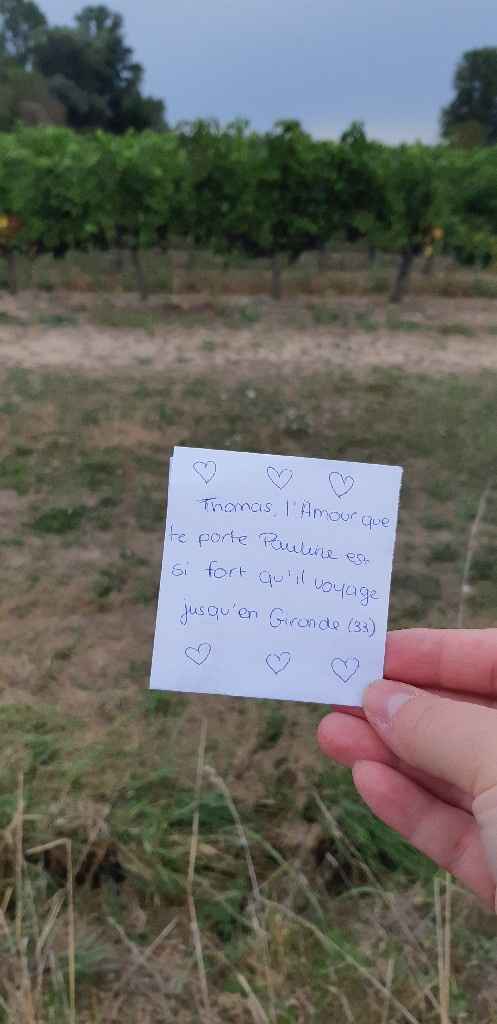 Thomas, l'Amour que
te porte Pauline est
si fort qu'il voyage
jusqu'en Gironde (33)